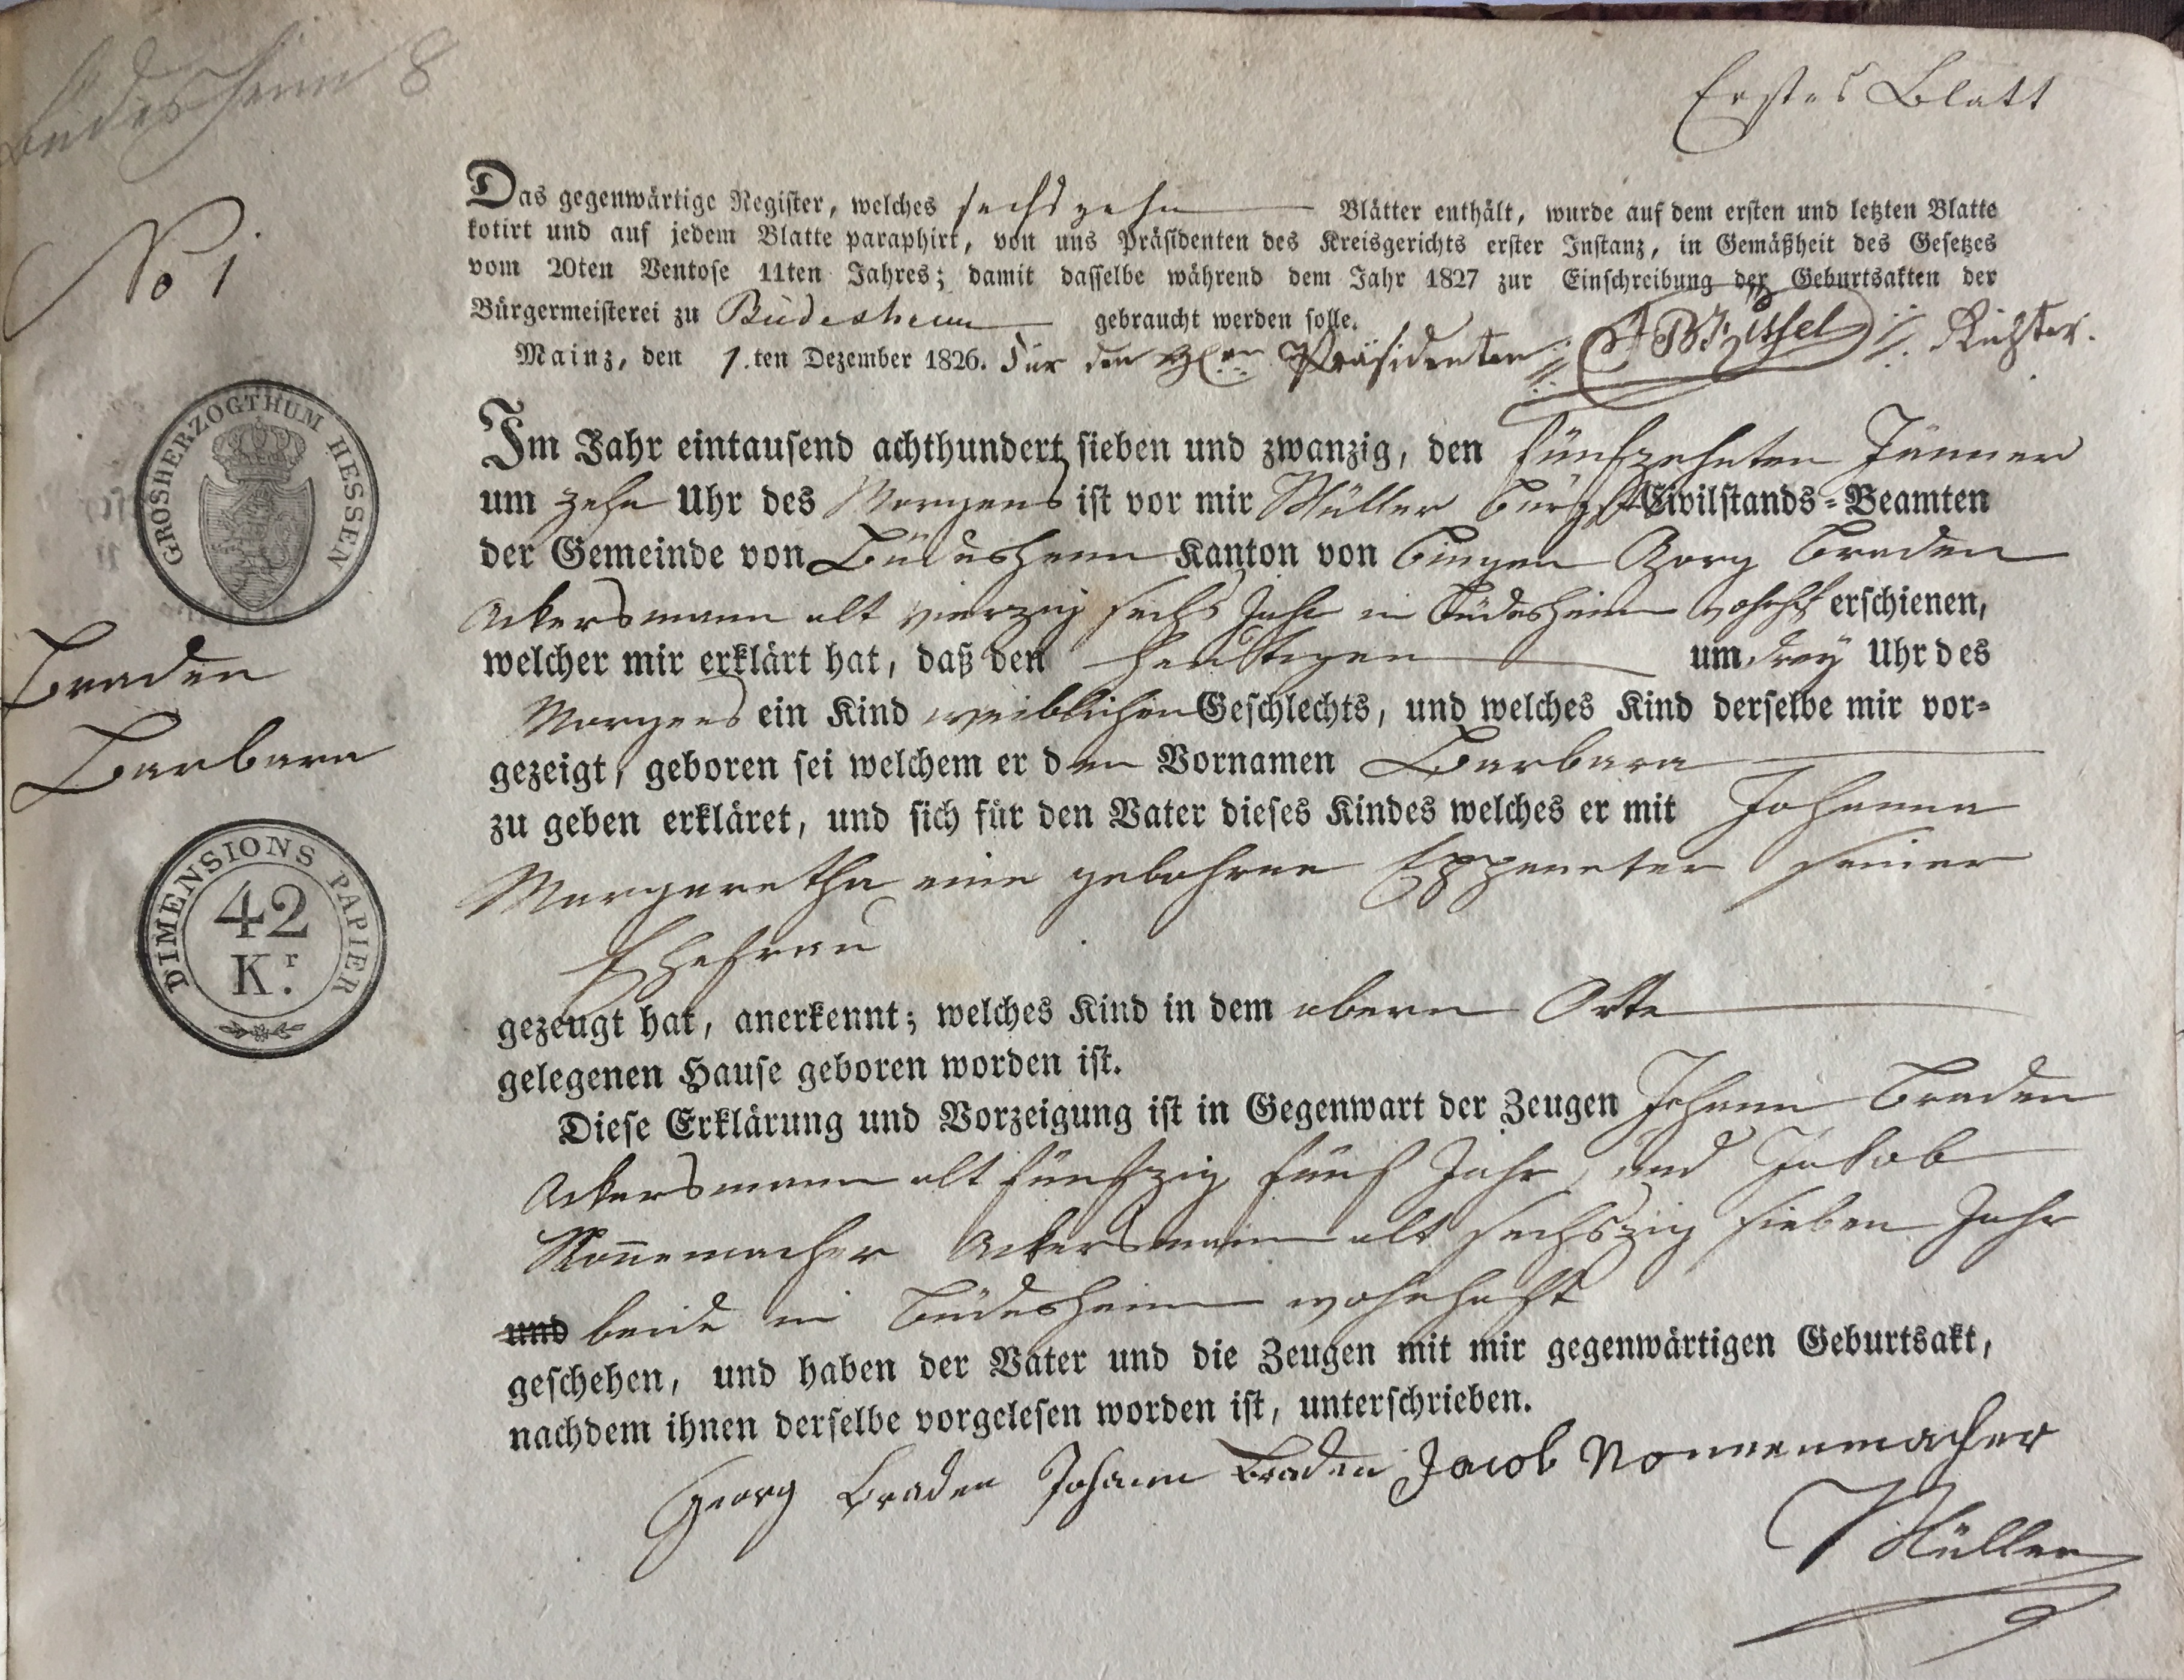 Büdesheim 8
Erstes Blatt
No 1
Das gegenwärtige Register, welches sechszehn Blätter enthält, wurde auf dem ersten und letzten Blatte
kotirt und auf jedem Blatte paraphirt, von uns Präsidenten des Kreisgerichts erster Instanz, in Gemäßheit des Gesetzes
vom 20ten Ventose 11ten Jahres; damit dasselbe während dem Jahr 1827 zur Einschreibung der Geburtsakten der
Bürgermeisterei zu Büdesheim gebraucht werden solle.
Mainz, den 1.ten Dezember 1826. Für den Präsidenten Richter.
GROSHERZOGTHUM HESSEN
Im Jahr eintausend achthundert sieben und zwanzig, den fünfzehnten Jänner
um zehn Uhr des Morgens ist vor mir Müller Bürgst Civilstands-Beamten
der Gemeinde von Büdesheim Kanton von Bingen Georg Braden
Ackersmann alt vierzig sechs Jahr in Büdesheim wohnhft erschienen,
welcher mir erklärt hat, daß den heutigen um drey Uhr des
Morgens ein Kind weiblichen Geschlechts, und welches Kind derselbe mir vor-
gezeigt, geboren sei welchem er den Vornamen Barbara
zu geben erkläret, und sich für den Vater dieses Kindes welches er mit Johanna
Margaretha eine gebohrne seiner
Ehefrau
gezeugt hat, anerkennt; welches Kind in dem obern Orte
gelegenen Hause geboren worden ist.
Diese Erklärung und Vorzeigung ist in Gegenwart der Zeugen Johann Braden
Ackersmann alt fünfzig fünf Jahr, und Jakob
Nonnemacher Ackersmann alt sechszig sieben Jahr
und beide in Büdesheim wohnhaft
geschehen, und haben der Vater und die Zeugen mit mir gegenwärtigen Geburtsakt,
nachdem ihnen derselbe vorgelesen worden ist, unterschrieben.
Georg Braden Johann Braden Jacob Nonnenmacher
Müller
Braden
Barbara
DIMENSIONS PAPIER
42
Kr.